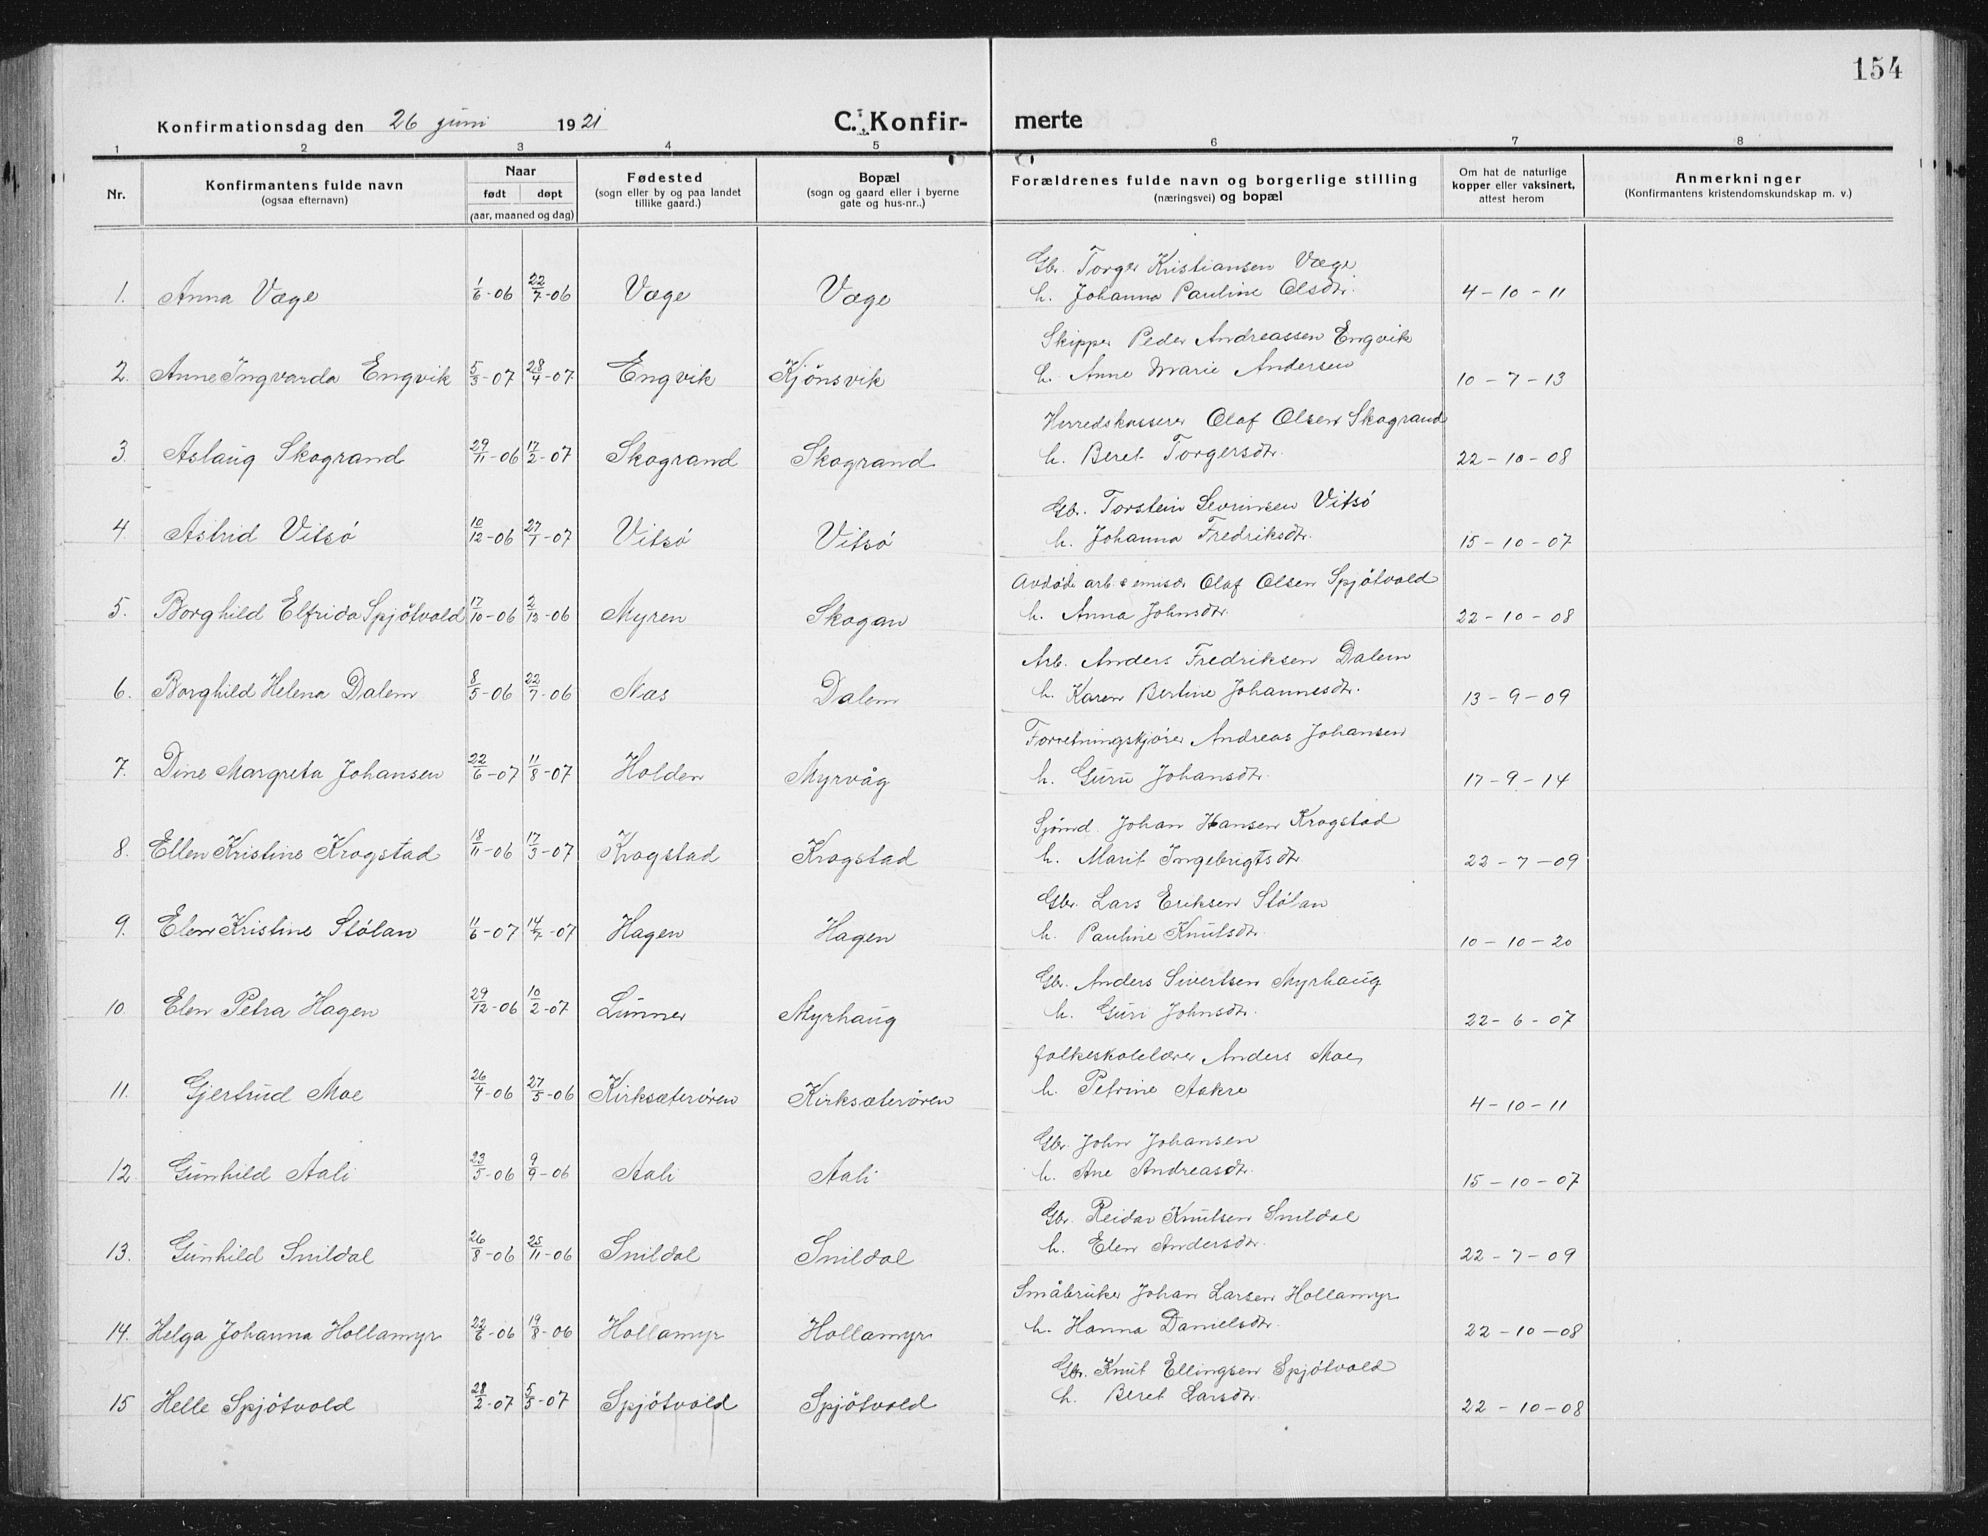 154
Konfirmationsdag den 26 juni 1921 C. Konfirmerte
1 2 3 4 5 6 7 8
Nr. Konfirmantens fulde navn (ogsaa efternavn) Naar født døpt (aar, maaned og dag) Fødested (sogn eller by og paa landet tillike gaard.) Bopæl (sogn og gaard eller i byerne gate og hus-nr..) Forældrenes fulde navn og borgerlige stilling (næringsvei) og bopæl Om hat de naturlige kopper eller vaksinert, attest herom Anmerkninger (Konfirmantens kristendomskundskap m. v.)
Gbr. Torger Kristiansen Væge
1. Anna Væge 1/6-06 22/7-06 Væge Væge h. Johanna Pauline Olsdtr. 4-10-11
Skipper Peder Andreassen Engvik
2. Anne Ingvarda Engvik 5/3-07 28/4-07 Engvik Kjönsvik h. Anne Marie Andersen 10-7-13
Herredskasserer Olaf Olsen Skogrand
3. Aslaug Skogrand 29/11-06 17/2-07 Skogrand Skogrand h. Beret Torgersdtr. 22-10-08
Gbr. Torstein Sevrinsen Vitsø
4. Astrid Vitsø 10/12-06 27/1-07 Vitsø Vitsø h. Johanna Fredriksdtr. 15-10-07
Avdøde arb. & emissær Olaf Olsen Spjøtvold
5. Borghild Elfrida Spjøtvold 17/10-06 2/12-06 Myren Skogan h. Anna Johnsdtr. 22-10-08
Arb. Anders Fredriksen Dalem
6. Borghild Helena Dalem 8/5-06 22/7-06 Næs Dalem h. Karen Bertine Johannesdtr. 13-9-09
Forretningskjører Andreas Johansen
7. Dine Margreta Johansen 22/6-07 11/8-07 Holden Myrvåg h. Guru Johansdtr. 17-9-14
Sjømd. Johan Hansen Krogstad
8. Ellen Kristine Krogstad 18/11-06 17/3-07 Krogstad Krogstad h. Marit Ingebrigtsdtr 22-7-09
Gbr. Lars Eriksen Stölan
9. Elen Kristine Stölan 11/6-07 14/7-07 Hagen Hagen h. Pauline Knutsdtr. 10-10-20
Gbr. Anders Sivertsen Myrhaug
10. Elen Petra Hagen 29/12-06 10/2-07 Lunner Myrhaug h. Guri Johnsdtr. 22-6-07
folkeskolelærer Anders Moe
11. Gjertrud Moe 26/4-06 27/5-06 Kirksæterören Kirksæterören h. Petrine Aakre 4-10-11
Gbr. John Johansen
12 Gunhild Aali 23/5-06 9/9-06 Aali Aali h. Ane Andreasdtr. 15-10-07
Gbr. Reidar Knutsen Snildal
13. Gunhild Snildal 26/8-06 25/11-06 Snildal Snildal h. Elen Andersdtr. 22-7-09
Småbruker Johan Larsen Hollamyr
14. Helga Johanna Hollamyr 22/6-06 19/8-06 Hollamyr Hollamyr h. Hanna Danielsdtr. 22-10-08
Gbr. Knut Ellingsen Spjøtvold
15 Helle Spjøtvold 28/2-07 5/5-07 Spjøtvold Spjøtvold h. Beret Larsdtr. 22-10-08